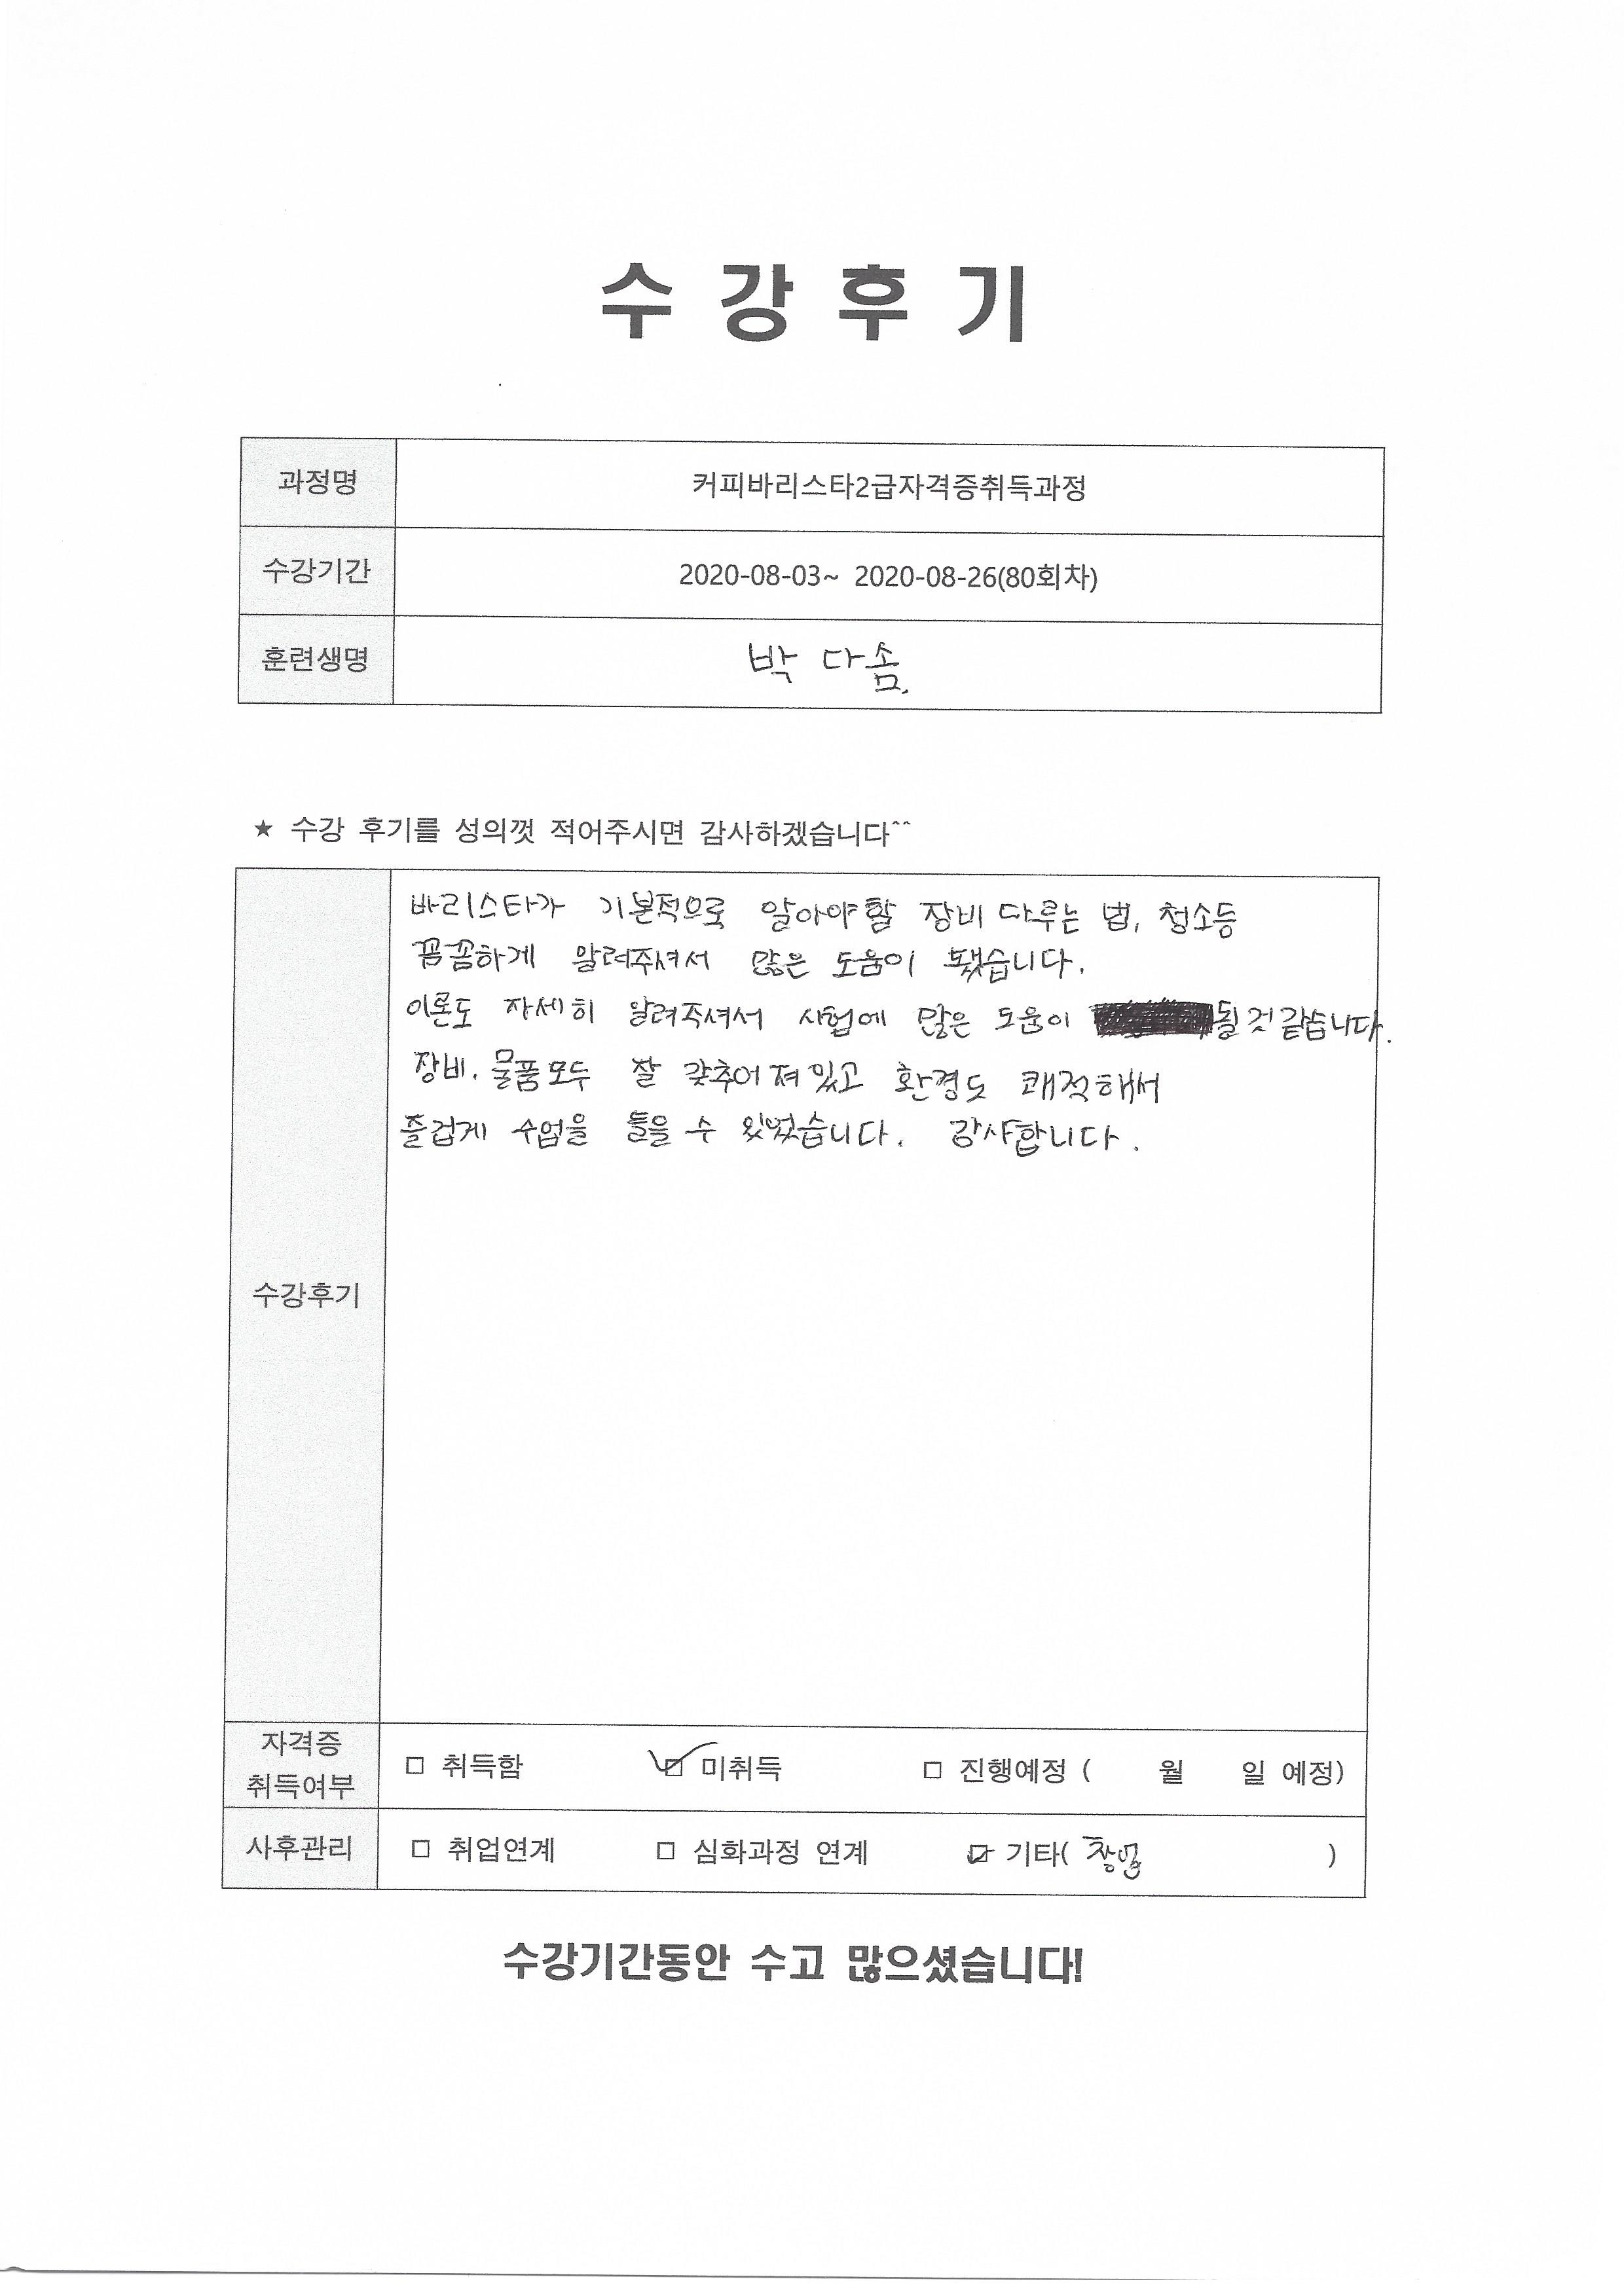 수강후기
과정명 커피바리스타2급자격증취득과정
수강기간 2020-08-03~ 2020-08-26(80회차)
훈련생명 박다솜
★ 수강 후기를 성의껏 적어주시면 감사하겠습니다^^
바리스타가 기본적으로 알아야할 장비 다루는 법, 청소등
꼼꼼하게 알려주셔서 많은 도움이 됐습니다.
이론도 자세히 알려주셔서 시험에 많은 도움이 될것같습니다.
장비, 물품모두 잘 갖추어져있고 환경도 쾌적해서
즐겁게 수업을 들을 수 있었습니다. 감사합니다.
수강후기
자격증
취득여부 □ 취득함 ☑ 미취득 □ 진행예정 ( 월 일 예정)
사후관리 □ 취업연계 □ 심화과정 연계 ☑ 기타( 창업 )
수강기간동안 수고 많으셨습니다!